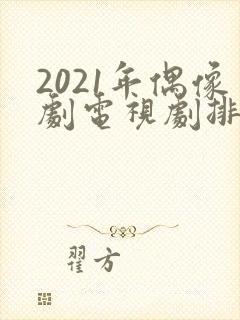 2021年偶像
劇電視劇排
翟方